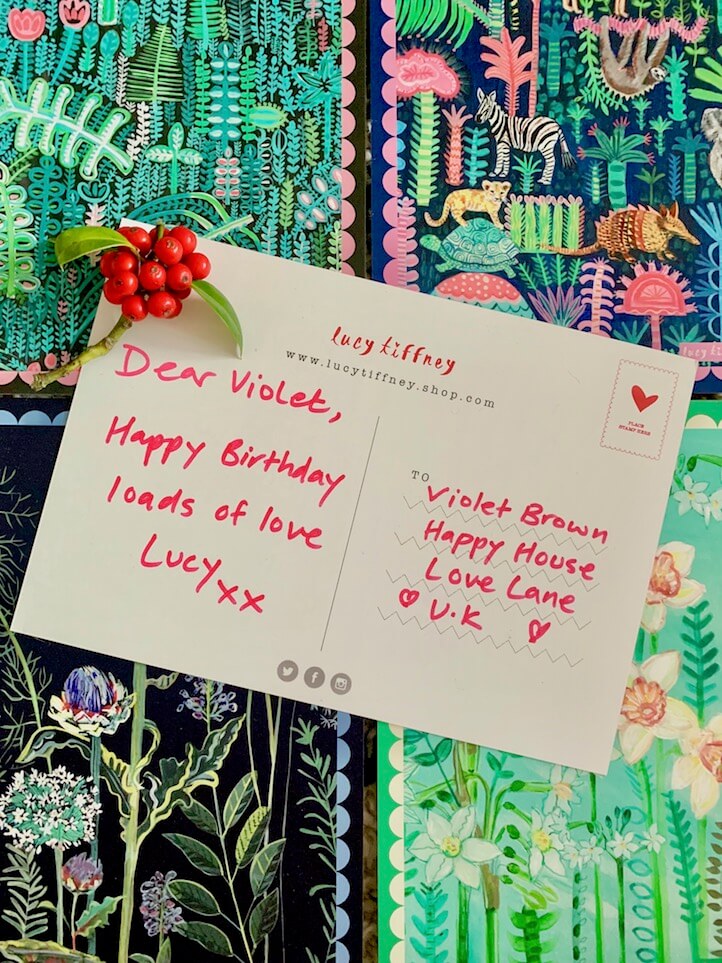 lucy tiffney
www.lucytiffney.shop.com
PLACE
STAMP HERE
Dear Violet,
Happy Birthday
loads of love
Lucy xx
TO
Violet Brown
Happy House
Love Lane
U.K
lucy ti